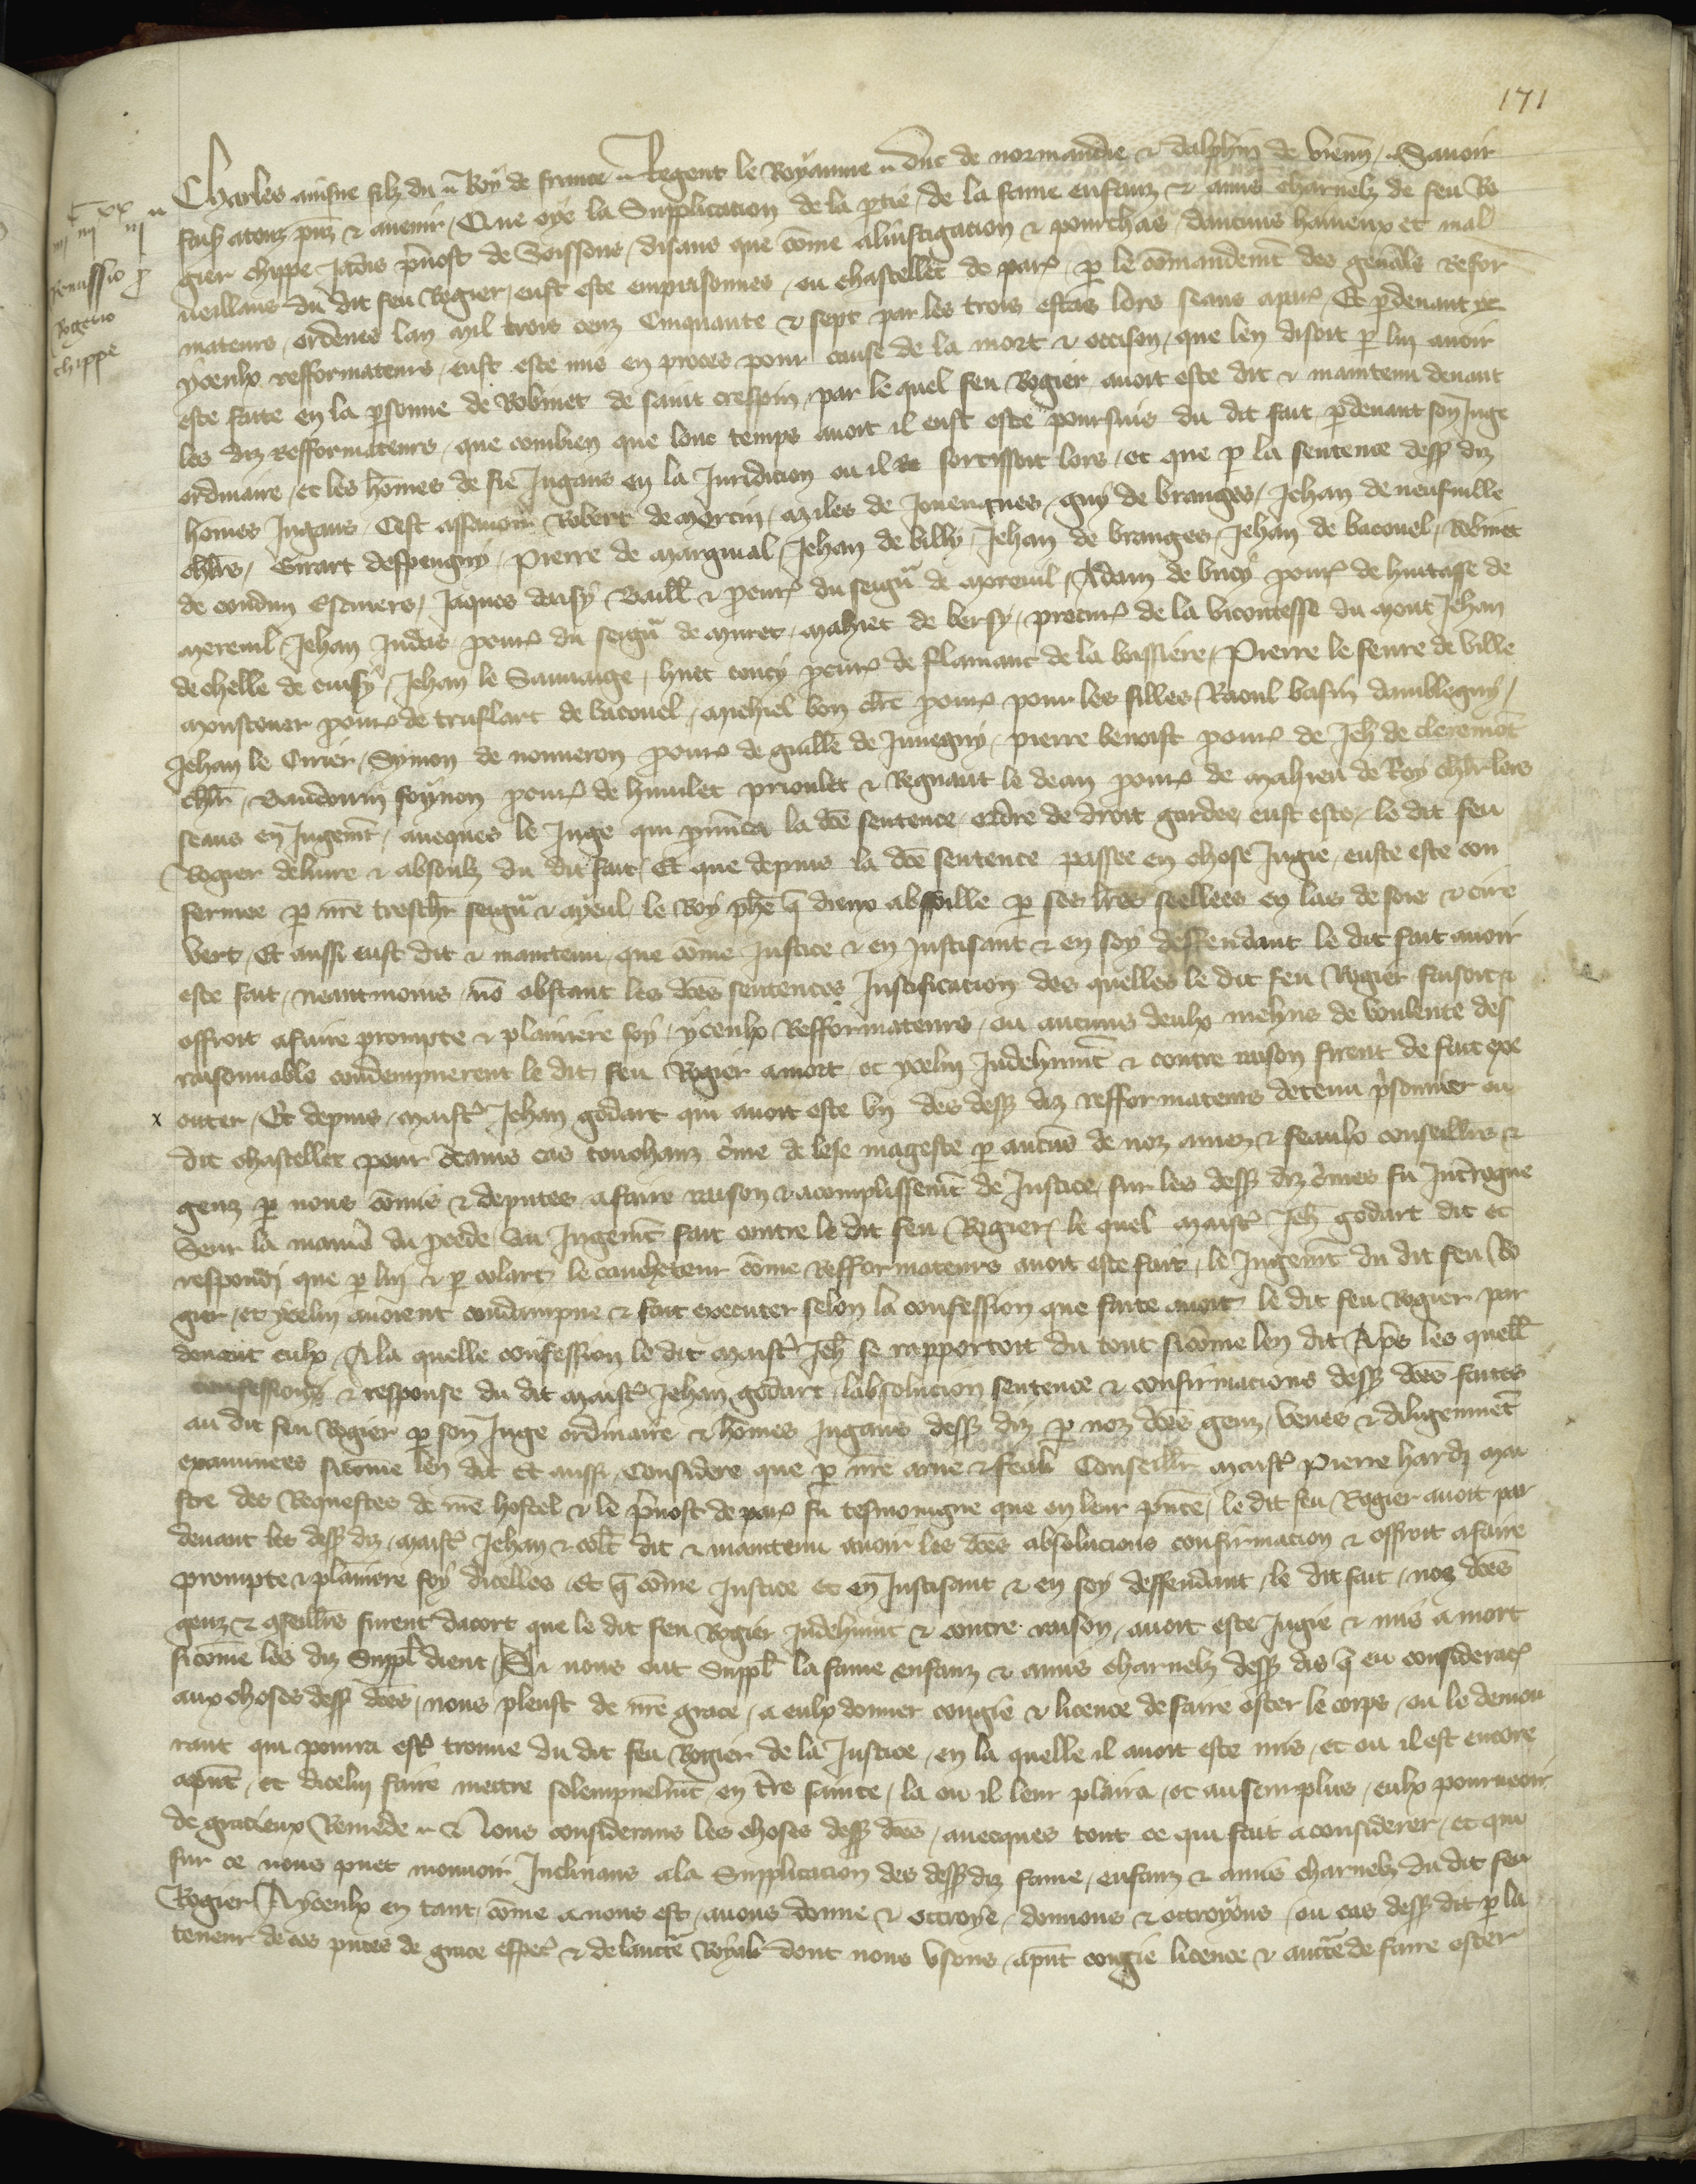 171
iijᶜ iiijˣˣ ij
Remissio pro
Rogerio
chippe
Charles ainsne filz du Roy de france Regent le Royaume duc de normandie & dalphin de vienn Sauoir
fais atouz pñz & auenir Que oye la Supplicacion de la ꝑtie de la fame enfanz & amis charnelz de feu Ro
gier chippe Jadis p̃uost de Soissons disans que cõme alinstigacion & pourchas daucuns haineux et mal
ueillans du dit feu Rogier eust este emprisonnes ou chastellet de par̃ ꝑ le cõmandemt̃ des geñalx Refor
mateurs ordenes lan mil trois cenz Cinquante & sept par les trois estas lors seans apar̃ Et ꝑdeuant yc
yceulx refformateurs eust este mis en proces pour cause de la mort & occison que len disoit ꝑ lui auoir
este faite en la ꝑsonne de Robinet de saint crespin par le quel feu Rogier auoit este dit & maintenu deuant
les diz refformateurs que combien que lonc temps auoit il eust este poursuis du dit fait ꝑdeuant son Juge
ordinaire et les hõmes de fie Jugans en la Juridicion ou il sortissoit lors et que ꝑ la sentence dess diz
homes Jugans Cest assauoir Robert de mercin Miles de Jouengnes guy de branges Jehan de neufuille
chlr̃s Girart despeugny Pierre de margiual Jehan de billy Jehan de branges Jehan de bacouel Robinet
de coudun Escuiers Jaques daisy Baill̃ & ꝓcur̃ du seigñ de moreuil Adam de bucy ꝓcur̃ de huitasse de
moreuil Jehan Judas ꝓcur̃ du seigñ de muret Mahiet de bersy procur̃ de la vicontesse du mont Jehan
de chelle de cuisy Jehan le Sauuaige huet coucy ꝓcur̃ de flamanc de la bassiere Pierre le feure de ville
monstouer ꝓcur̃ de truflart de bacouel Michiel bon clr̃c ꝓcur̃ pour les filles Raoul basin dambleguy
Jehan le Cirier Symon de nouueron ꝓcur̃ de guillẽ de Juuegny pierre benoist ꝓcur̃ de Jeh̃ de cleremõt
chlr̃ Baudouin soynon ꝓcur̃ de humlet prioulet & Regnaut le dean ꝓcur̃ de Mahieu de Roy chlr̃ lors
seans en Jugemt̃ auecques le Juge qui ꝓnũca la dc̃e sentence ordre de droit gardee eust este le dit feu
Rogier deliure & absoulz du dit fait Et que depuis la dc̃e sentence passee en chose Jugie euste este con
fermee ꝑ nr̃e treschr̃ seigñ & ayeul le Roy phẽ q̃ dieux absoille ꝑ ses lr̃es seellees en las de soie & cire
vert Et aussi eust dit & maintenu que cõme Justice & en Justisant & en soy deffendant le dit fait auoir
este fait neantmoins nõ obstant les dc̃es sentences Justificacion des quelles le dit feu Rogier faisoit &
offroit afaire prompte & plainiere foy yceulx Refformateurs ou aucuns deulx meh̃us de voulente des
raisonnable condempnerent le dit feu Rogier amort et ycelui Induehmt̃ & contre raison firent de fait exe
cuter Et depuis maist̃ Jehan godart qui auoit este vn des dess diz refformateurs detenu p̃sonnier ou
dit chastellet pour dc̃ains cas touchanz c̃me de lese mageste ꝑ aucũs de noz amez & feaulx conseillr̃s &
genz ꝑ nous cõmis & deputes afaire raison & acomplissemt̃ de Justice sur les dess diz c̃mes fu Int̃rogue
Seur la maniẽ du ꝓcede du Jugemt̃ fait contre le dit feu Rogier le quel maist̃ Jeh̃ godart dit et
respondi que ꝑ lui & ꝑ colart le caucheteur cõme refformateurs auoit este fait le Jugemt̃ du dit feu Ro
gier et ycelui auoient condampne & fait executer selon la confession que faite auoit le dit feu Rogier par
deuant eulx A la quelle confession le dit maist̃ Jeh̃ se rapportoit du tout sicõme len dit Ap̃s les quell̃
confessions & response du dit maist̃ Jehan godart labsolucion sentence & confirmacions dess dc̃es faites
au dit feu Rogier ꝑ son Juge ordinaire & hõmes Jugans dess diz ꝑ noz dc̃es genz veues & diligemmẽt
examinees sicõme len dit Et aussi Considere que ꝑ nr̃e ame & feal Conseillr̃ maist̃ Pierre hardi mai
stre des Requestes de nr̃e hostel & le p̃uost de par̃ fu tesmoingne que en leur p̃nce le dit feu Rogier auoit par
deuant les dess diz maist̃ Jehan & col̃t dit & maintenu auoir les dc̃es absolucions confirmacion & offroit afaire
prompte & plainiere foy dicelles et q̃ cõme Justice et en Justisant & en soy deffendant le dit fait noz dc̃es
genz & ꝯseillr̃s furent dacort que le dit feu Rogier Induehmt̃ & contre raison auoit este Jugie & mis a mort
sicõme les diz Suppl̃ dient Si nous ont Suppl̃ la fame enfanz & amis charnelz dess dis q̃ eu considerac̃
aux choses dess dc̃es nous pleust de nr̃e grace a eulx donner congie & licence de faire oster le corps ou le demou
rant qui pourra est̃ trouue du dit feu Rogier de la Justice en la quelle il auoit este mis et ou il est encore
ap̃nt et dicelui faire mettre solempnelmt̃ en tr̃e sainte la ou il leur plaira et au surplus eulx pourueoir
de gracieux Remede & Nous considerans les choses dess dc̃es auecques tout ce qui fait a considerer et qui
sur ce nous puet mouuoir Inclinans ala Supplicacion des dess diz fame enfanz & amis charnelz du dit feu
Rogier A yceulx en tant cõme a nous est auons donne & ottroye donnons & ottroyons ou cas dess dit ꝑ la
teneur de ces p̃ntes de grace esp̃ec & de lauctẽ Royal dont nous vsons ap̃nt congie licence & auctẽ de faire oster